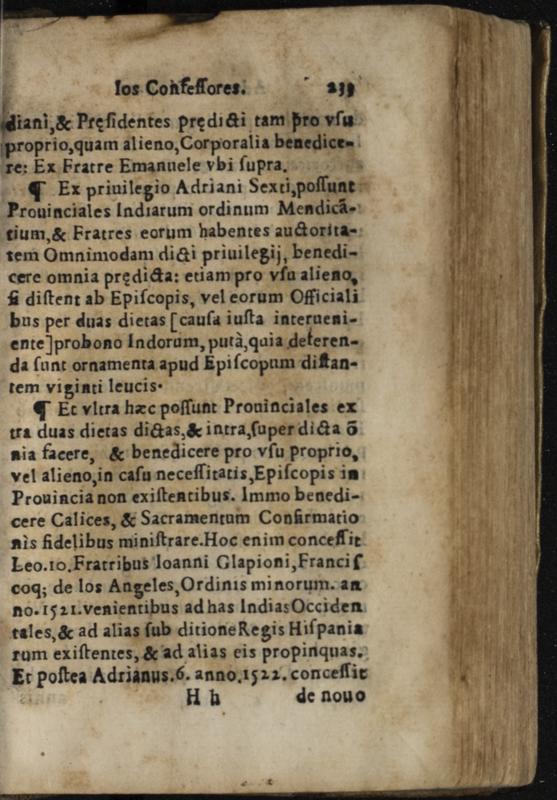 los Confeſſores. 239
diani, & Pręſidentes prędicti tam pro vſu
proprio, quam alieno, Corporalia benedice-
re: Ex Fratre Emanuele vbi ſupra.
¶ Ex priuilegio Adriani Sexti, poſſunt
Prouinciales Indiarum ordinum Mendicã-
tium, & Fratres eorum habentes auctorita-
tem Omnimodam dicti priuilegij, benedi-
cere omnia prędicta: etiam pro vſu alieno,
ſi diſtent ab Epiſcopis, vel eorum Officiali
bus per duas dietas [cauſa iuſta interueni-
ente] probono Indorum, putà, quia deferen-
da ſunt ornamenta apud Epiſcopum diſtan-
tem viginti leucis.
¶ Et vltra hæc poſſunt Prouinciales ex
tra duas dietas dictas, & intra, ſuper dicta õ
nia facere, & benedicere pro vſu proprio,
vel alieno, in caſu neceſſitatis, Epiſcopis in
Prouincia non exiſtentibus. Immo benedi-
cere Calices, & Sacramentum Confirmatio
nis fidelibus miniſtrare. Hoc enim conceſſit
Leo. 10. Fratribus Ioanni Glapioni, Franciſ
coq; de los Angeles, Ordinis minorum. an
no. 1521. venientibus ad has Indias Occiden
tales, & ad alias ſub ditione Regis Hiſpania
rum exiſtentes, & ad alias eis propinquas.
Et poſtea Adrianus. 6. anno. 1522. conceſſit
H h de nouo